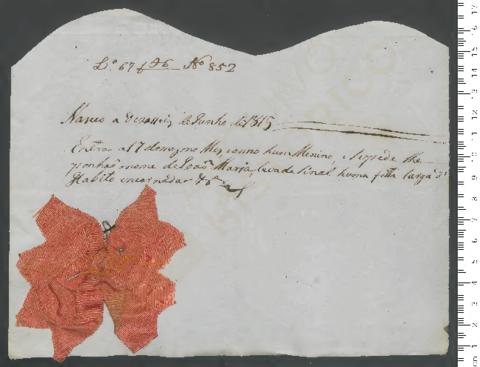 L.º 67 f 76 Nº 852
Nasceo a dezasseis de Junho de 1815
Entrou a 17 do mesmo Mez e anno hum Menino, e se pede lhe
ponhaõ nome de Joaõ Maria, leva de sinal huma fitta larga d'
Habito encarnada